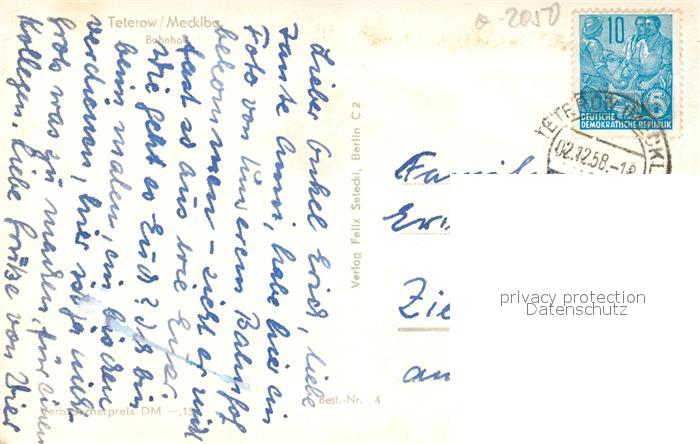 Teterow / Mecklbg.
Bahnhof
a-2050
10
DEUTSCHE
DEMOKRATISCHE REPUBLIK
5
TETEROW
02.12.58.-18
Lieber Onkel Erich, liebe
Tante Anni, habe hier ein
Foto von Unserem Bahnhof
bekommen - sieht er nicht
fast so aus wie Eurer
Wie geht es Euch? Ich bin
beim malen, ein bischen
verdienen, hier ist ja nicht
groß was zu machen, für einen
Kollegen. Liebe Grüße von Hier
Verbraucherpreis DM —,15
Best.-Nr. 4
Verlag Felix Setecki, Berlin C 2
Famil
Eri
Zie
am
privacy protection
Datenschutz